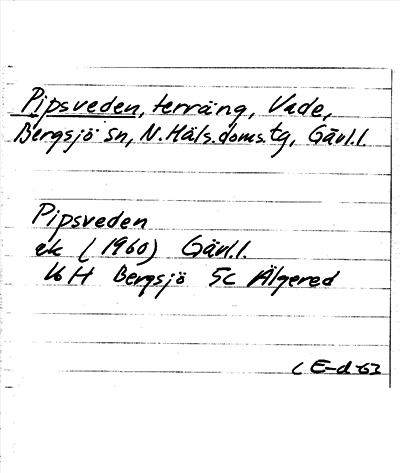 Pipsveden, terräng, Vade,
Bergsjö sn, N. Häls. doms. tg, Gävl.l.
Pipsveden
ek (1960) Gävl.l.
16 H Bergsjö 5C Älgered